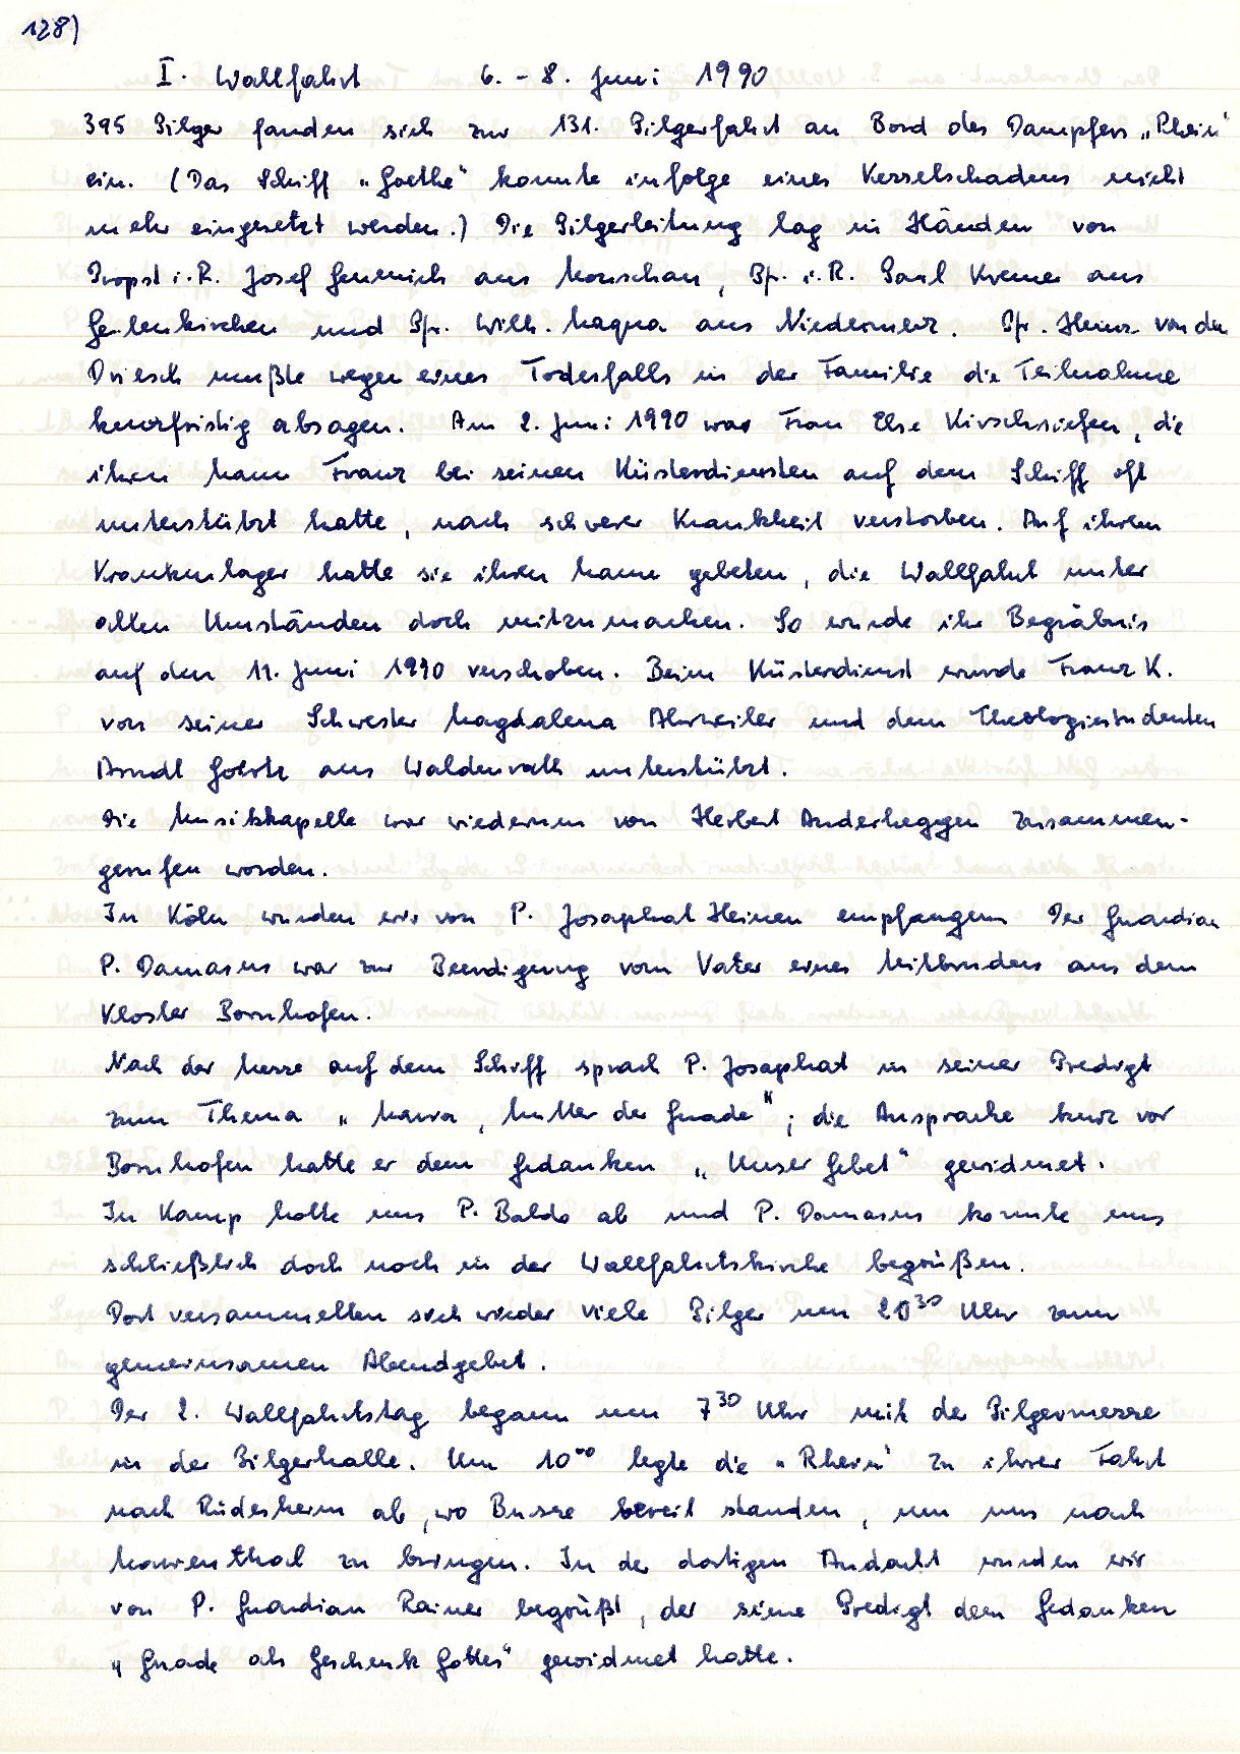 128)
I. Wallfahrt 6. - 8. Juni 1990
395 Pilger fanden sich zur 131. Pilgerfahrt an Bord des Dampfers „Rhein"
ein. (Das Schiff „Goethe" konnte infolge eines Kesselschadens nicht
mehr eingesetzt werden.) Die Pilgerleitung lag in Händen von
Propst i.R. Josef Gennrich aus Monschau, Pfr. i.R. Paul Kremer aus
Geilenkirchen und Pfr. Wilh. Maqua aus Niedermerz. Pfr. Heinr. von den
Driesch mußte wegen eines Todesfalls in der Familie die Teilnahme
kurzfristig absagen. Am 2. Juni 1990 war Frau Else Kirschsiefen, die
ihren Mann Franz bei seinen Küsterdiensten auf dem Schiff oft
unterstützt hatte, nach schwerer Krankheit verstorben. Auf ihrem
Krankenlager hatte sie ihren Mann gebeten, die Wallfahrt unter
allen Umständen doch mitzumachen. So wurde ihr Begräbnis
auf den 11. Juni 1990 verschoben. Beim Küsterdienst wurde Franz K.
von seiner Schwester Magdalena Ahrweiler und dem Theologiestudenten
Arndt aus Waldenrath unterstützt.
Die Musikkapelle war wiederum von Herbert Anderhegggen zusammen-
gerufen worden.
In Köln wurden wir von P. Josaphat Heinen empfangen. Der Guardian
P. Damasus war zur Beerdigung vom Vater eines Mitbruders aus dem
Kloster Bornhofen.
Nach der Messe auf dem Schiff sprach P. Josaphat in seiner Predigt
zum Thema „Maria, Mutter der Gnade"; die Ansprache kurz vor
Bornhofen hatte er dem Gedanken „Unser Gebet" gewidmet.
In Kamp holte uns P. Baldo ab und P. Damasus konnte uns
schließlich doch noch in der Wallfahrtskirche begrüßen.
Dort versammelten sich wieder viele Pilger um 20³⁰ Uhr zum
gemeinsamen Abendgebet.
Der 2. Wallfahrtstag begann um 7³⁰ Uhr mit der Pilgermesse
in der Pilgerhalle. Um 10⁰⁰ legte die „Rhein" zu ihrer Fahrt
nach Rüdesheim ab, wo Busse bereit standen, um uns nach
Marienthal zu bringen. In der dortigen Andacht wurden wir
von P. Guardian Rainer begrüßt, der seine Predigt dem Gedanken
„Gnade als Geschenk Gottes" gewidmet hatte.